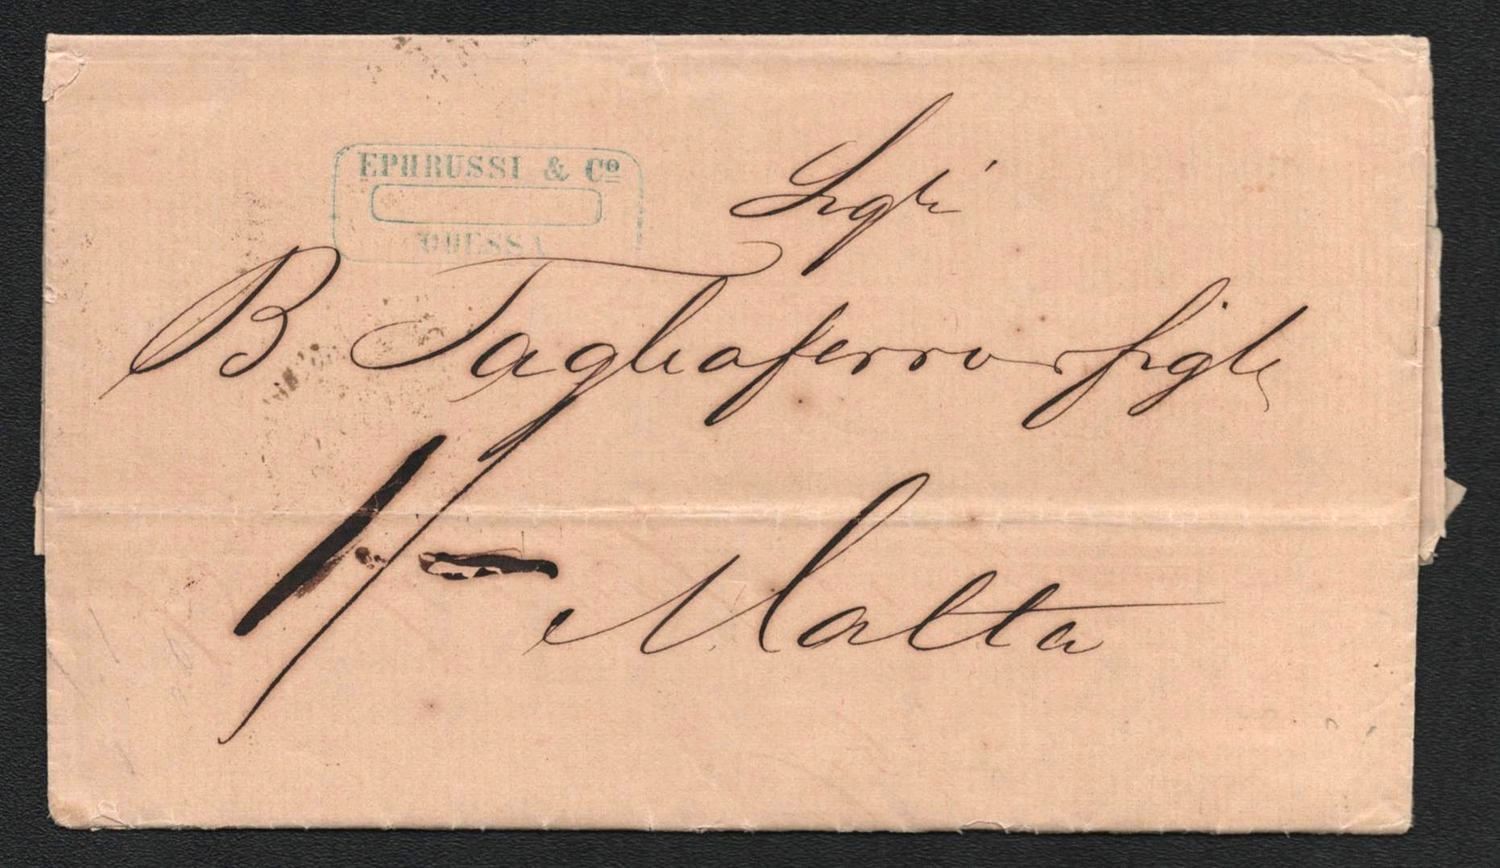 EPHRUSSI & Cº
ODESSA
Sigri
B Tagliaferro e figli
1/-
Malta